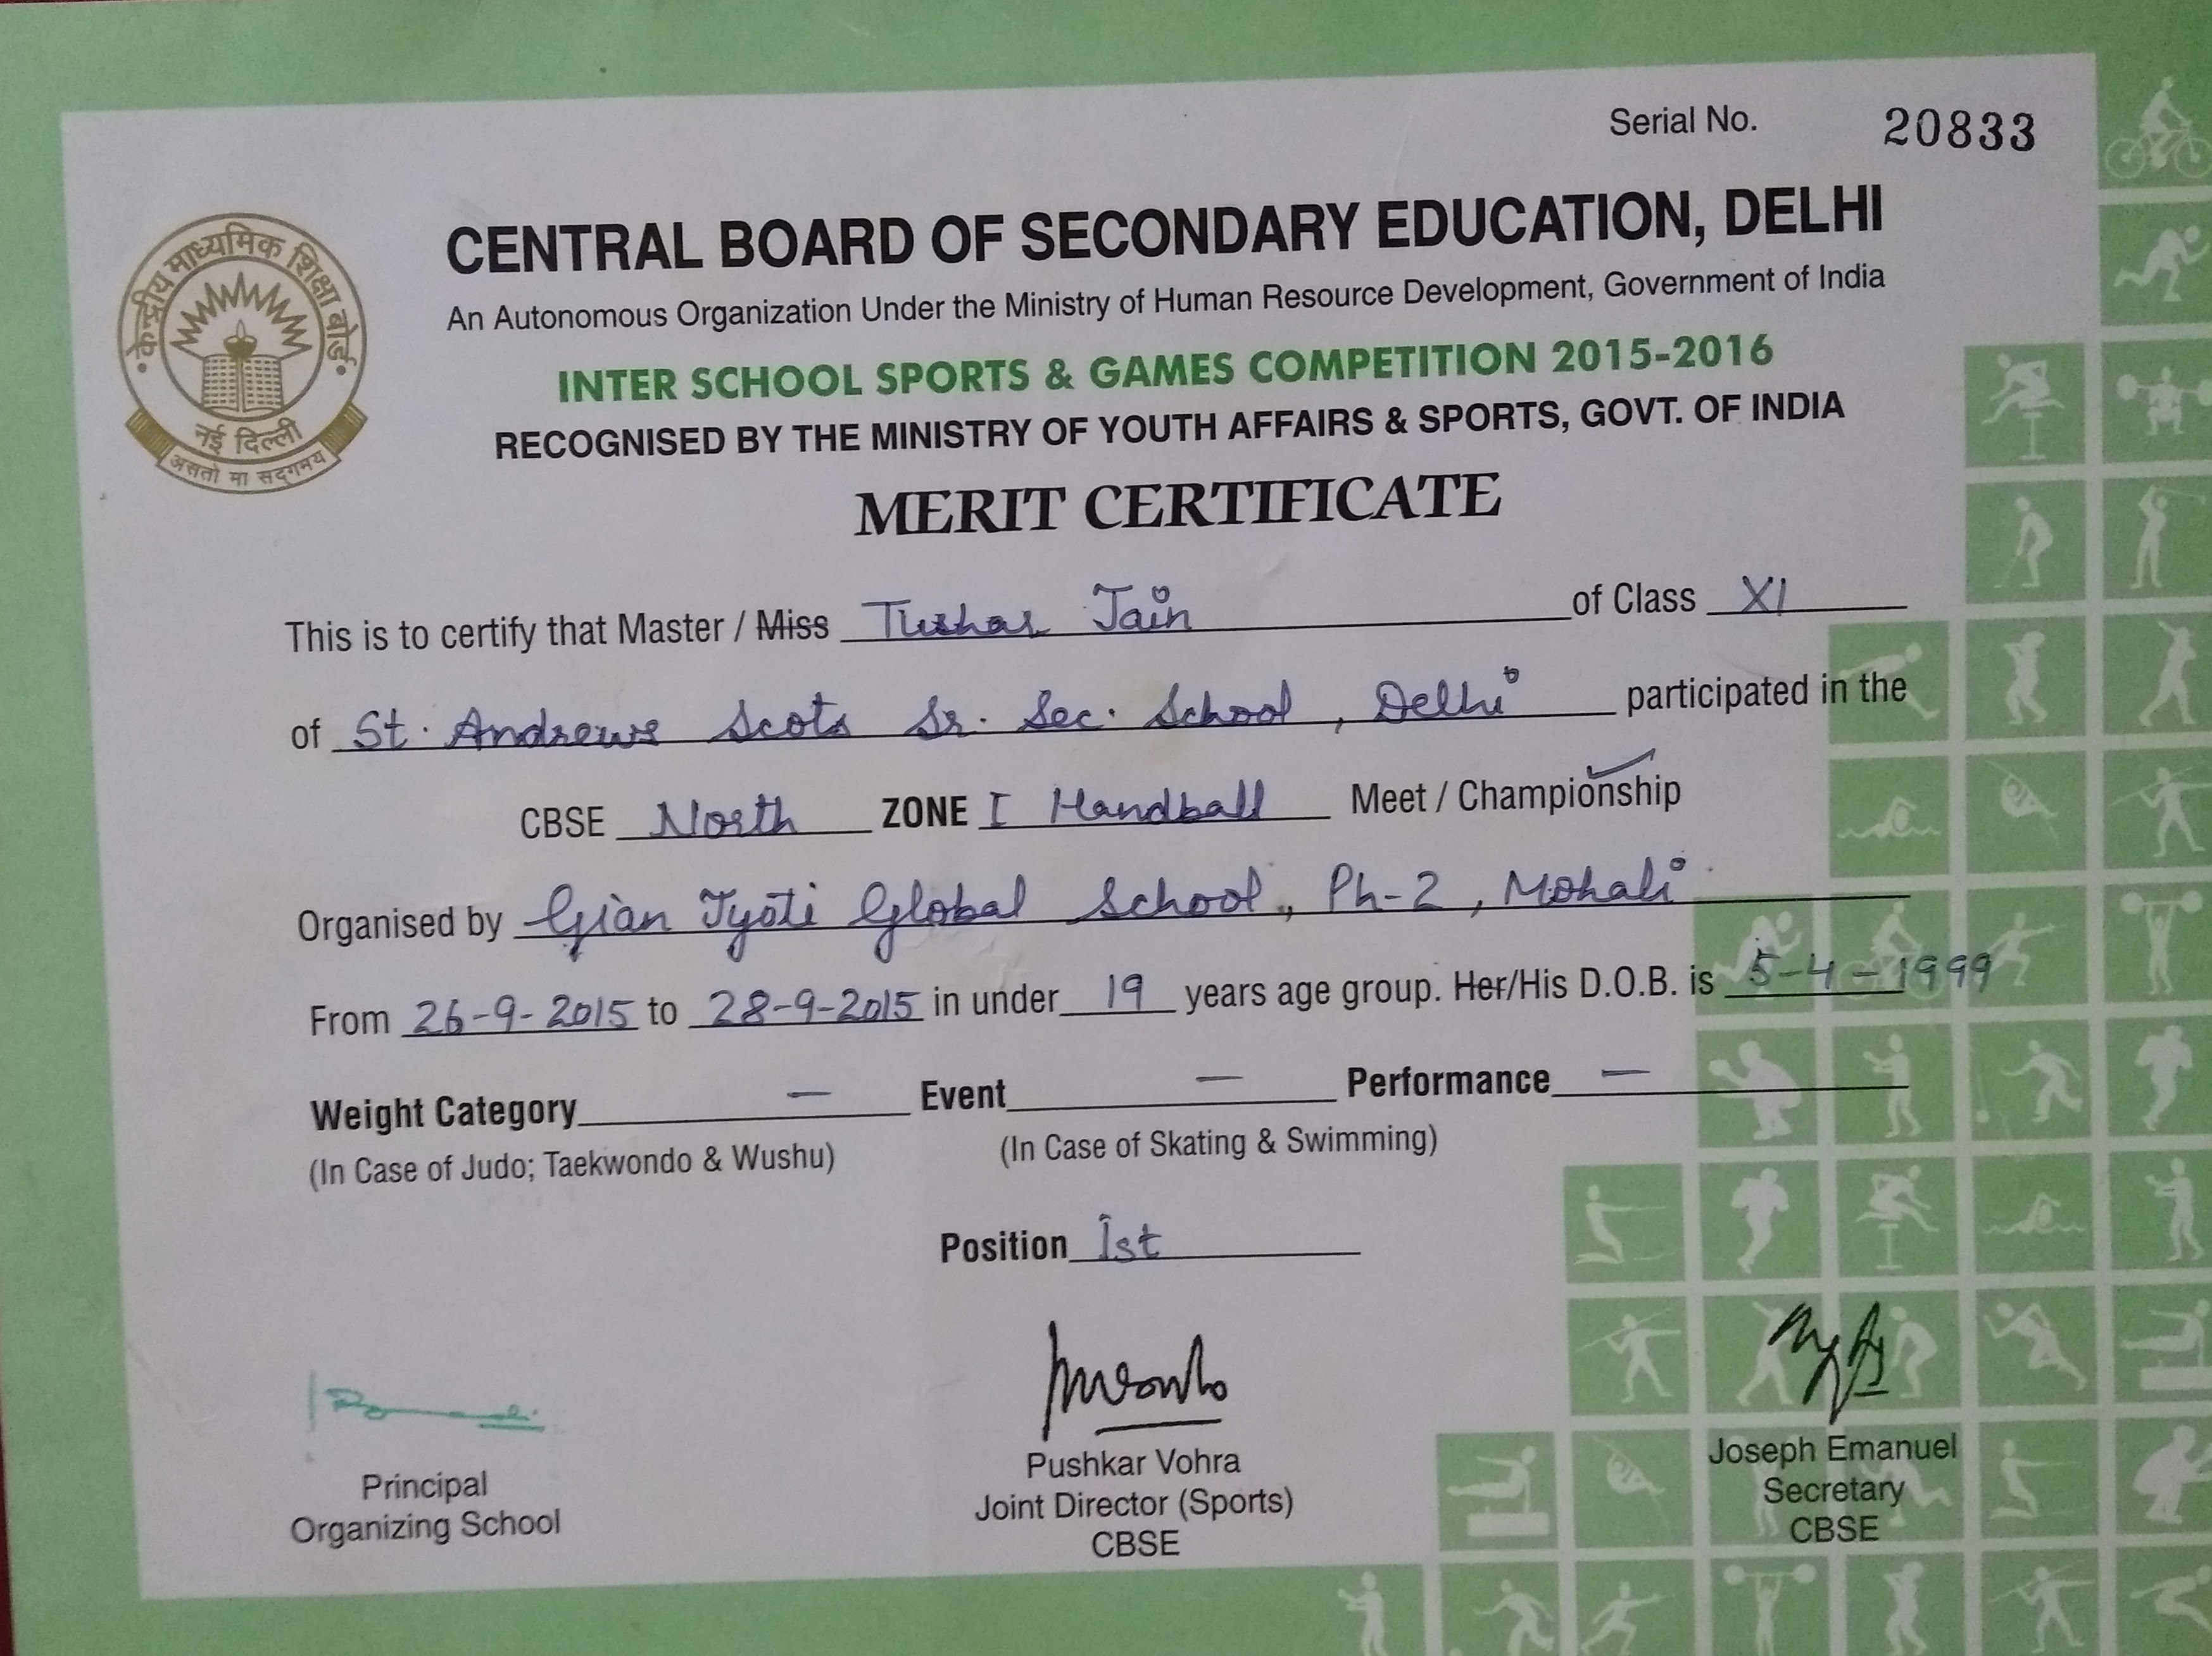 Serial No. 20833
केन्द्रीय माध्यमिक शिक्षा बोर्ड
नई दिल्ली
असतो मा सद्गमय
CENTRAL BOARD OF SECONDARY EDUCATION, DELHI
An Autonomous Organization Under the Ministry of Human Resource Development, Government of India
INTER SCHOOL SPORTS & GAMES COMPETITION 2015-2016
RECOGNISED BY THE MINISTRY OF YOUTH AFFAIRS & SPORTS, GOVT. OF INDIA
MERIT CERTIFICATE
This is to certify that Master / Miss Tushar Jain of Class XI
of St. Andrews Scots Sr. Sec. School, Delhi participated in the
CBSE North ZONE I Handball Meet / Championship
Organised by Gian Jyoti Global School, Ph-2, Mohali
From 26-9-2015 to 28-9-2015 in under 19 years age group. Her/His D.O.B. is 5-4-1999
Weight Category — Event — Performance —
(In Case of Judo; Taekwondo & Wushu) (In Case of Skating & Swimming)
Position Ist
Principal
Organizing School
Pushkar Vohra
Joint Director (Sports)
CBSE
Joseph Emanuel
Secretary
CBSE